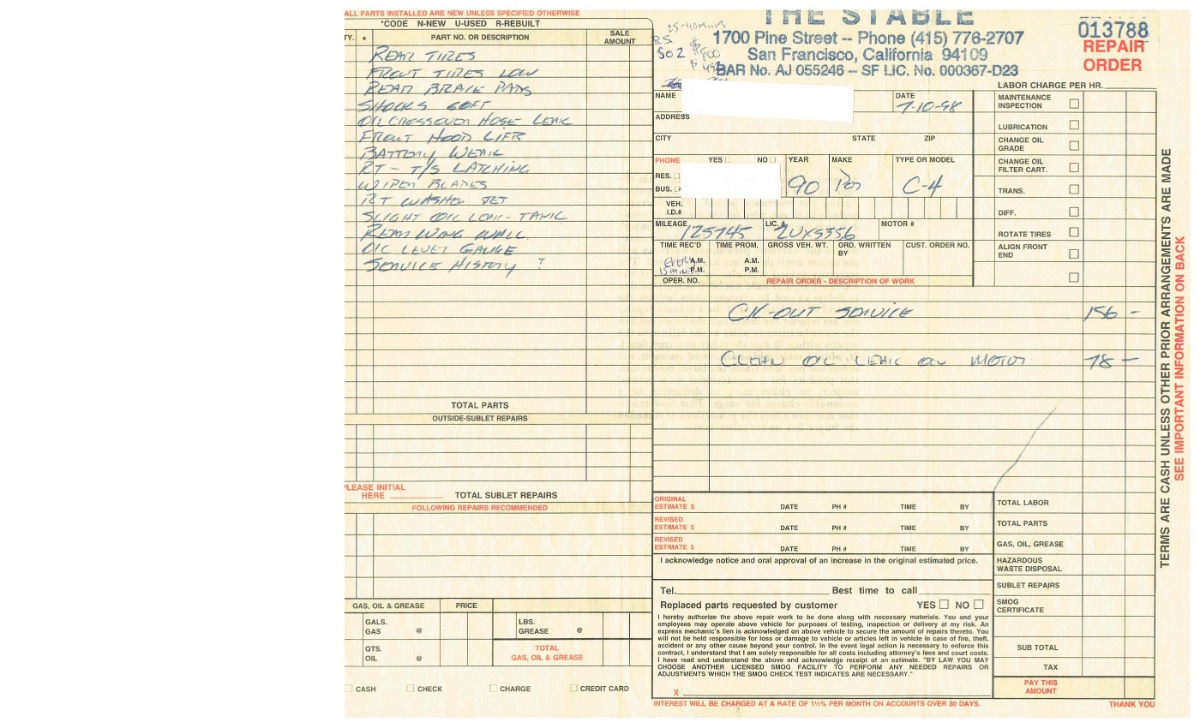 ALL PARTS INSTALLED ARE NEW UNLESS SPECIFIED OTHERWISE
*CODE N-NEW U-USED R-REBUILT
TY. * PART NO. OR DESCRIPTION SALE AMOUNT
REAR TIRES
FRONT TIRES LOW
REAR BRAKE PADS
SHOCKS SOFT
OIL CROSSOVER HOSE LEAK
FRONT HOOD LIFTS
BATTERY WEAK
RT - T/S LATCHING
WIPER BLADES
RT WASHER JET
SLIGHT OIL LEAK - TANK
REAR WING WALL
OIL LEVEL GAUGE
SERVICE HISTORY ?
TOTAL PARTS
OUTSIDE-SUBLET REPAIRS
PLEASE INITIAL
HERE TOTAL SUBLET REPAIRS
FOLLOWING REPAIRS RECOMMENDED
GAS, OIL & GREASE PRICE
GALS. GAS @ LBS. GREASE @
QTS. OIL @ TOTAL GAS, OIL & GREASE
CASH CHECK CHARGE CREDIT CARD
THE STABLE
1700 Pine Street -- Phone (415) 776-2707
San Francisco, California 94109
BAR No. AJ 055246 -- SF LIC. No. 000367-D23
013788
REPAIR
ORDER
LABOR CHARGE PER HR.
NAME DATE 7-10-98
ADDRESS
CITY STATE ZIP
PHONE YES NO YEAR MAKE TYPE OR MODEL
RES.
BUS. 90 Por C-4
VEH. I.D.#
MILEAGE 125745 LIC.# 2UXS356 MOTOR #
TIME REC'D TIME PROM. GROSS VEH. WT. ORD. WRITTEN BY CUST. ORDER NO.
A.M. A.M.
P.M. P.M.
OPER. NO. REPAIR ORDER - DESCRIPTION OF WORK
MAINTENANCE INSPECTION
LUBRICATION
CHANGE OIL GRADE
CHANGE OIL FILTER CART.
TRANS.
DIFF.
ROTATE TIRES
ALIGN FRONT END
CK-OUT SERVICE 156 -
CLEAN OIL LEAK ON MOTOR 78 -
ORIGINAL ESTIMATE $ DATE PH # TIME BY
REVISED ESTIMATE $ DATE PH # TIME BY
REVISED ESTIMATE $ DATE PH # TIME BY
I acknowledge notice and oral approval of an increase in the original estimated price.
Tel. Best time to call
Replaced parts requested by customer YES NO
I hereby authorize the above repair work to be done along with necessary materials. You and your
employees may operate above vehicle for purposes of testing, inspection or delivery at my risk. An
express mechanic's lien is acknowledged on above vehicle to secure the amount of repairs thereto. You
will not be held responsible for loss or damage to vehicle or articles left in vehicle in case of fire, theft,
accident or any other cause beyond your control. In the event legal action is necessary to enforce this
contract, I understand that I am solely responsible for all costs including attorney's fees and court costs.
I have read and understand the above and acknowledge receipt of an estimate. "BY LAW YOU MAY
CHOOSE ANOTHER LICENSED SMOG FACILITY TO PERFORM ANY NEEDED REPAIRS OR
ADJUSTMENTS WHICH THE SMOG CHECK TEST INDICATES ARE NECESSARY."
X
INTEREST WILL BE CHARGED AT A RATE OF 1½% PER MONTH ON ACCOUNTS OVER 30 DAYS.
TOTAL LABOR
TOTAL PARTS
GAS, OIL, GREASE
HAZARDOUS WASTE DISPOSAL
SUBLET REPAIRS
SMOG CERTIFICATE
SUB TOTAL
TAX
PAY THIS AMOUNT
THANK YOU
TERMS ARE CASH UNLESS OTHER PRIOR ARRANGEMENTS ARE MADE
SEE IMPORTANT INFORMATION ON BACK